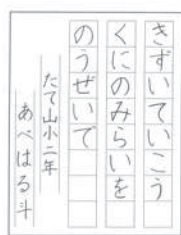 きずいていこう
くにのみらいを
のうぜいで
たて山小二年
あべはる斗